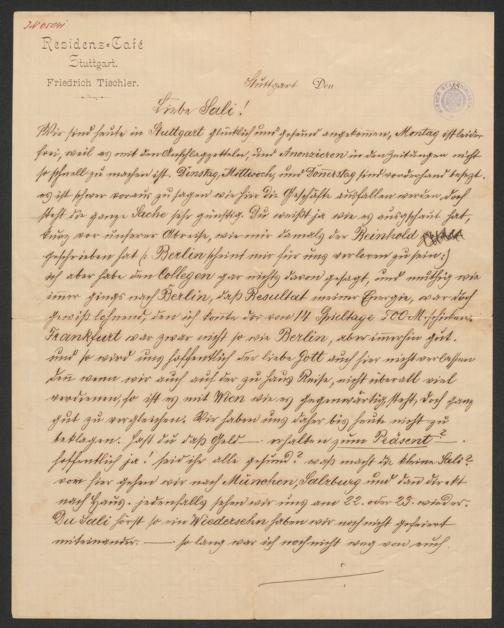 Residenz-Café
Stuttgart.
Friedrich Tischler.
Stuttgart Den
Liebe Sali!
Wir sind heute in Stuttgart glücklich und gesund angekommen, Montag ist leider
frei, weil es mit den Anschlagzetteln, und Anonzieren in den Zeitungen nicht
so schnell zu machen ist. Dinstag, Mittwoch, und Donerstag sind vorderhand besezt.
es ist schwer voraus zu sagen wie hir die Geschäfte ausfallen werden, doch
steht die ganze Sache sehr günstig. Du weißt ja wie es ausgschaut hat,
kurz vor unserer Abreise, wie mir damals der Reinhold
geschrieben hat (: Berlin scheint mir für uns verloren zu sein:)
ich aber habe den Collegen gar nichts davon gesagt, und muthig wie
immer gings nach Berlin, daß Resultat meiner Energie, war doch
gewiß lohnend, den ich konte dir von 14 Spieltage 500 M. schicken.
Frankfurt war zwar nicht so wie Berlin, aber imerhin gut.
und so wird uns hoffentlich der liebe Gott auch hier nicht verlassen
den wenn wir auch auf der zu haus Reise, nicht überall viel
verdienen, so ist es mit Wien wie es gegenwärtig steht, doch ganz
gut zu vergleichen. Wir haben uns daher bis heute nicht zu
beklagen. Hast du daß Geld — erhalten zum Präsent? —
hoffentlich ja! seid ihr alle gesund? waß macht die kleine Sali?
von hier gehen wir nach München, Salzburg und dan direkt
nach Haus. jedenfalls sehen wir uns am 22. oder 23. wieder.
Du Sali hörst so ein Wiedersehn haben wir noch nicht gefeiert
miteinander. — so lang war ich noch nicht weg von euch.